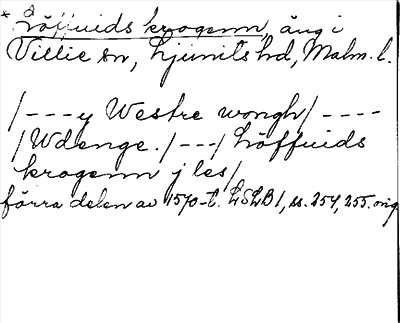 * Löffuids krogenn, äng i
Villie sn, Ljunits hd, Malm. l.
/---y Westre wongh/----
/Wdenge./---/Löffuids
krogenn j les/
förra delen av 1570-t. LSLB1, ss. 254, 255. orig.